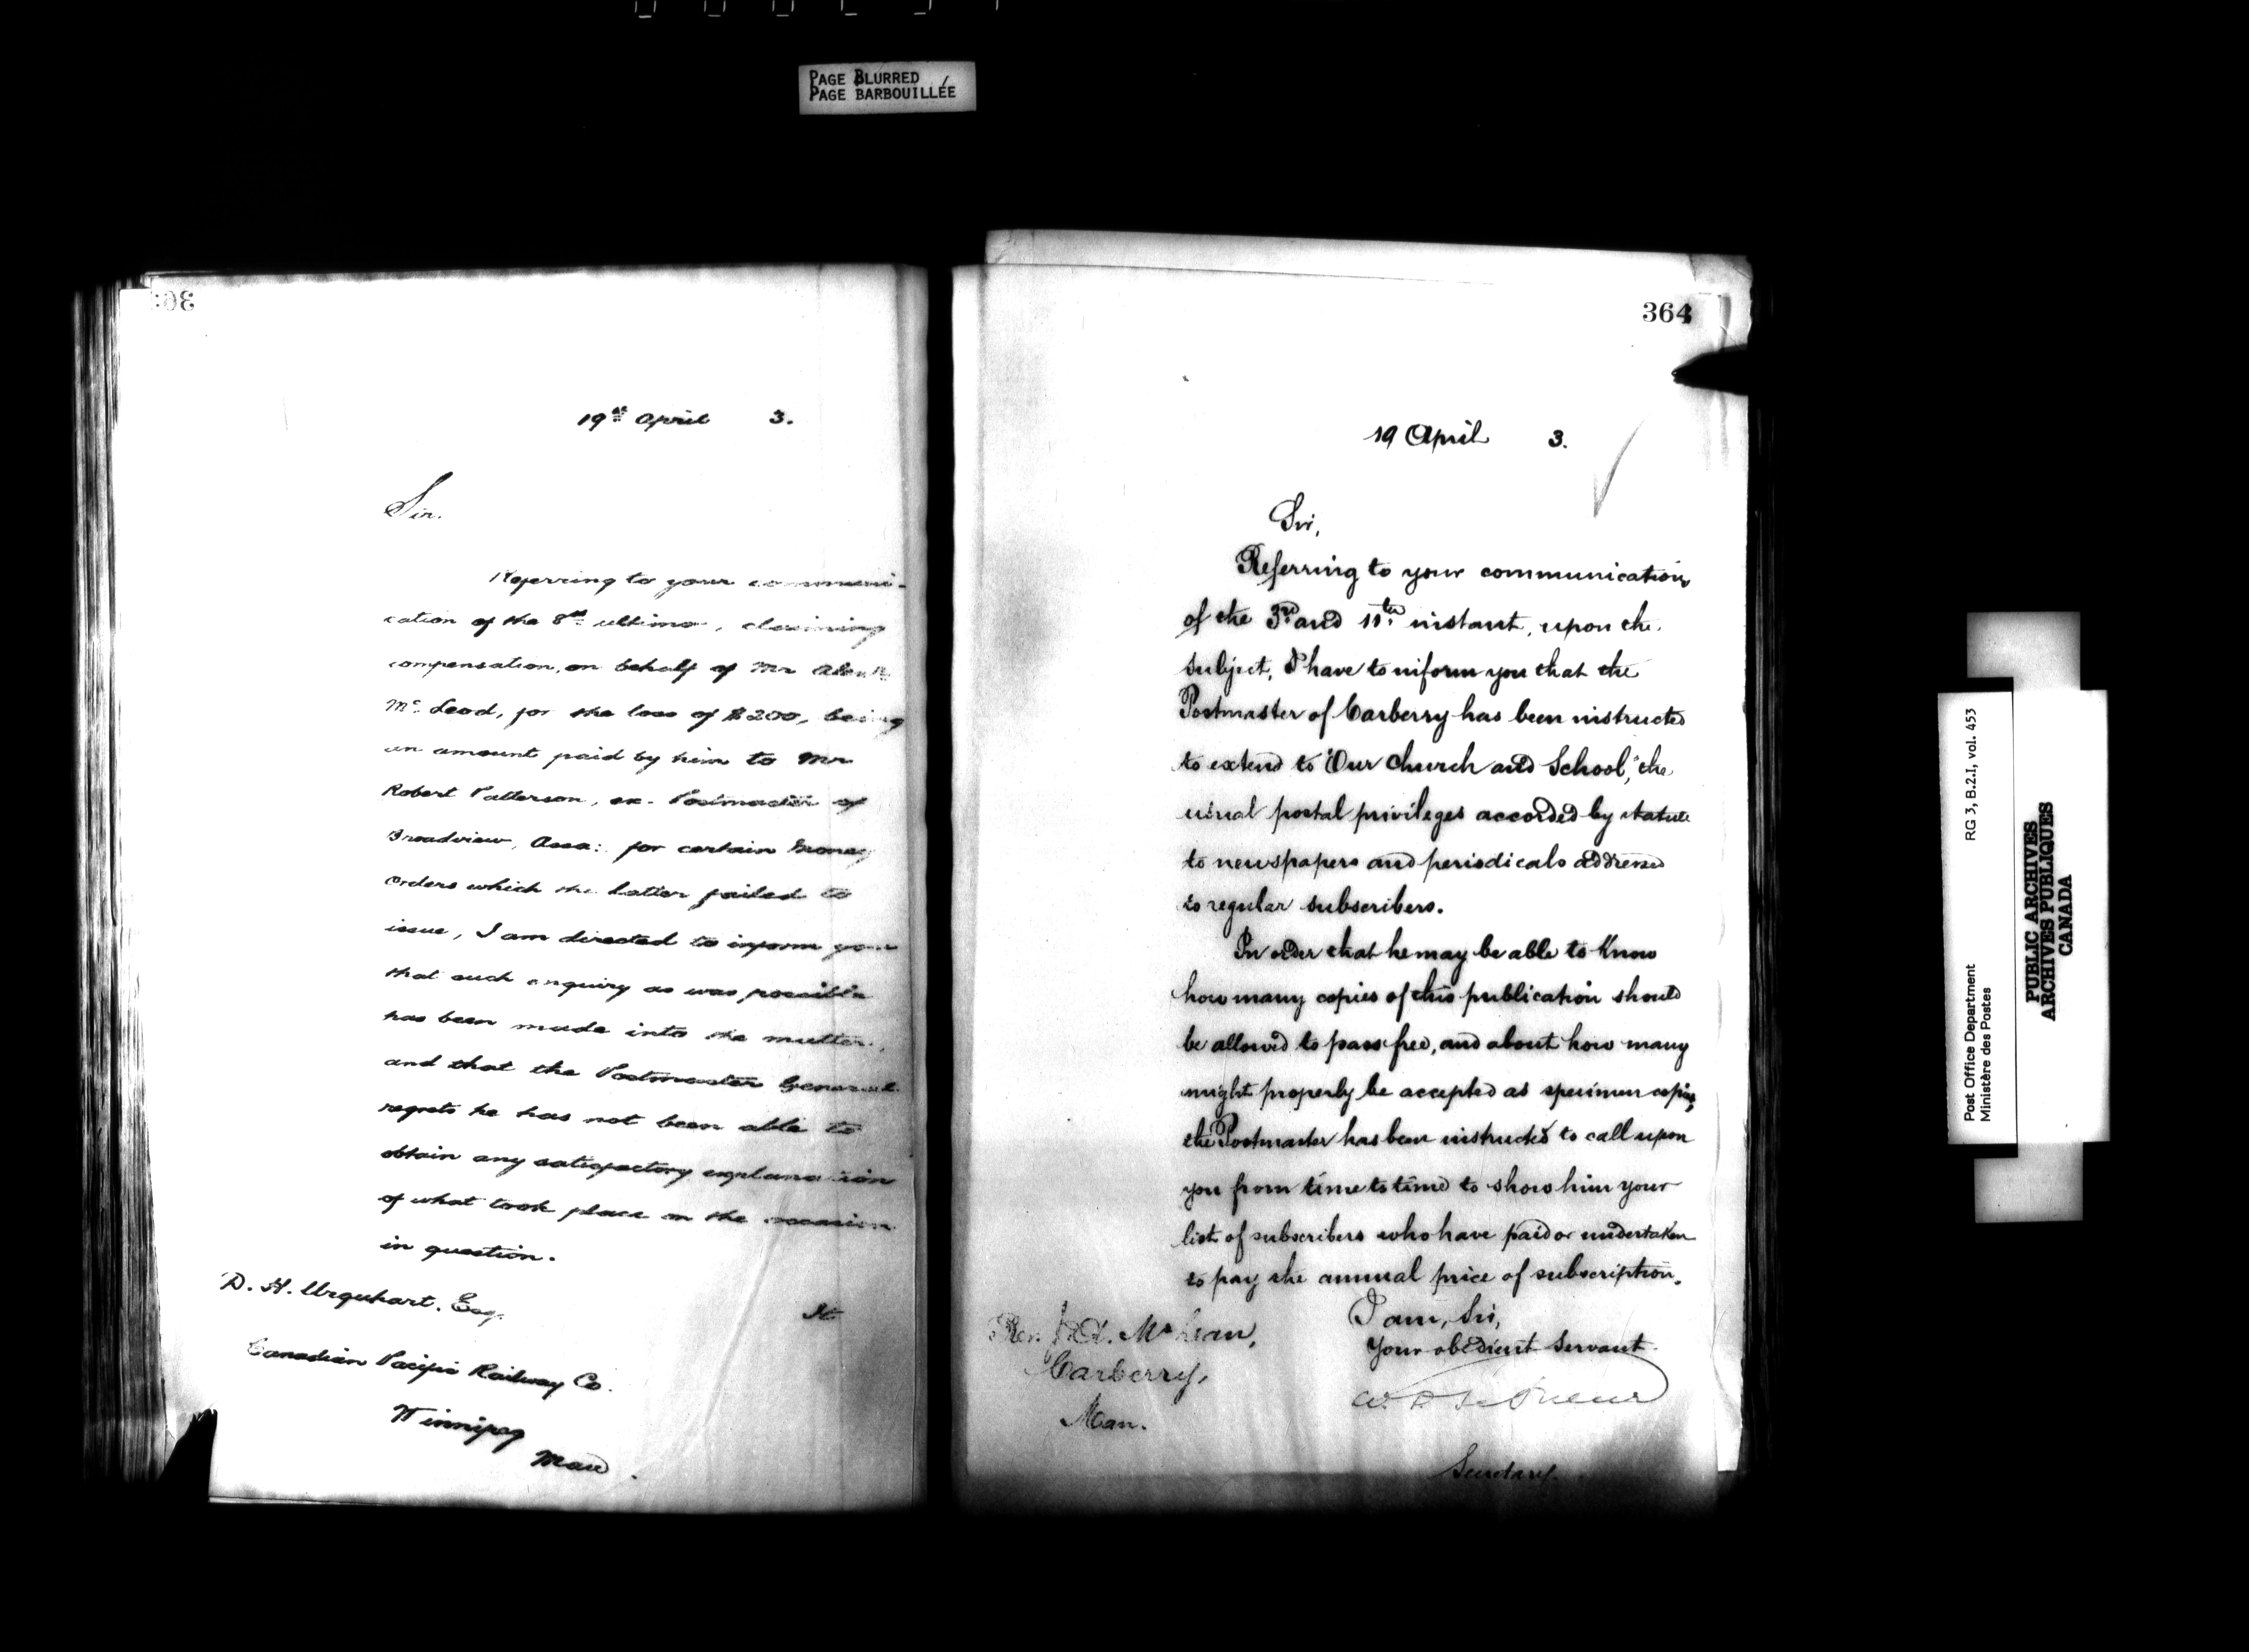 PAGE BLURRED
PAGE BARBOUILLÉE
19th April 3.
Sir.
Referring to your communi-
cation of the 8th ultimo, claiming
compensation, on behalf of Mr
Mc Leod, for the loss of $200, being
an amount paid by him to Mr
Robert Patterson, ex-Postmaster of
Broadview, Assa: for certain Money
Orders which the latter failed to
issue, I am directed to inform you
that such enquiry as was possible
has been made into the matter,
and that the Postmaster General
regrets he has not been able to
obtain any satisfactory explanation
of what took place on the occasion
in question.
D. H. Urquhart. Esq.
Canadian Pacific Railway Co.
Winnipeg
Man.
364
19 April 3.
Sir,
Referring to your communication
of the 3rd and 11th instant, upon the
subject, I have to inform you that the
Postmaster of Carberry has been instructed
to extend to "Our Church and School," the
usual postal privileges accorded by statute
to newspapers and periodicals addressed
to regular subscribers.
In order that he may be able to know
how many copies of this publication should
be allowed to pass free, and about how many
might properly be accepted as specimen copies,
the Postmaster has been instructed to call upon
you from time to time to show him your
list of subscribers who have paid or undertaken
to pay the annual price of subscription.
I am, Sir,
Your obedient servant.
Rev. Mc Lean,
Carberry,
Man.
Secretary.
Post Office Department RG 3, B.2.I, vol. 453
Ministère des Postes
PUBLIC ARCHIVES
ARCHIVES PUBLIQUES
CANADA